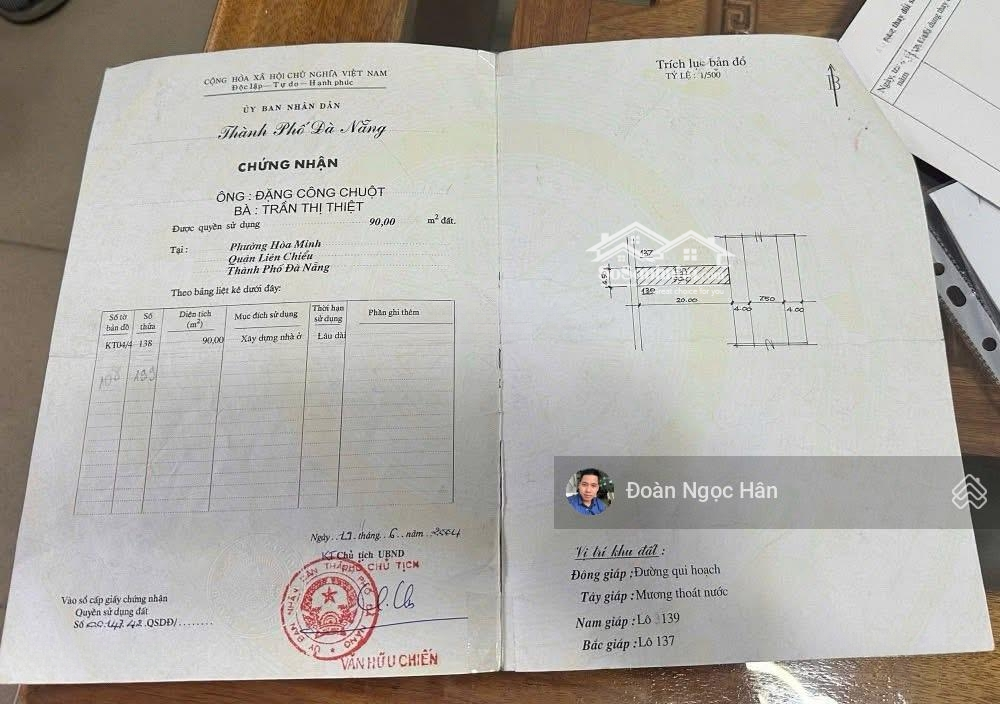 CỘNG HÒA XÃ HỘI CHỦ NGHĨA VIỆT NAM
Độc lập - Tự do - Hạnh phúc
ỦY BAN NHÂN DÂN
Thành Phố Đà Nẵng
CHỨNG NHẬN
ÔNG : ĐẶNG CÔNG CHUỘT
BÀ : TRẦN THỊ THIỆT
Được quyền sử dụng 90,00 m² đất.
Tại : Phường Hòa Minh
Quận Liên Chiểu
Thành Phố Đà Nẵng
Theo bảng liệt kê dưới đây:
Số tờ bản đồ Số thửa Diện tích (m²) Mục đích sử dụng Thời hạn sử dụng Phần ghi thêm
KT04/4 138 90,00 Xây dựng nhà ở Lâu dài
108 199
Ngày..17..tháng..6..năm..2004
KT Chủ tịch UBND
PHÓ CHỦ TỊCH
Vào sổ cấp giấy chứng nhận
Quyền sử dụng đất
Số 00.147.42.QSDĐ/........
VĂN HỮU CHIẾN
Trích lục bản đồ
TỶ LỆ : 1/500
B
137
4.5
139
20.00
4.00
7.50
4.00
Đoàn Ngọc Hân
Vị trí khu đất :
Đông giáp :Đường qui hoạch
Tây giáp :Mương thoát nước
Nam giáp :Lô 139
Bắc giáp :Lô 137